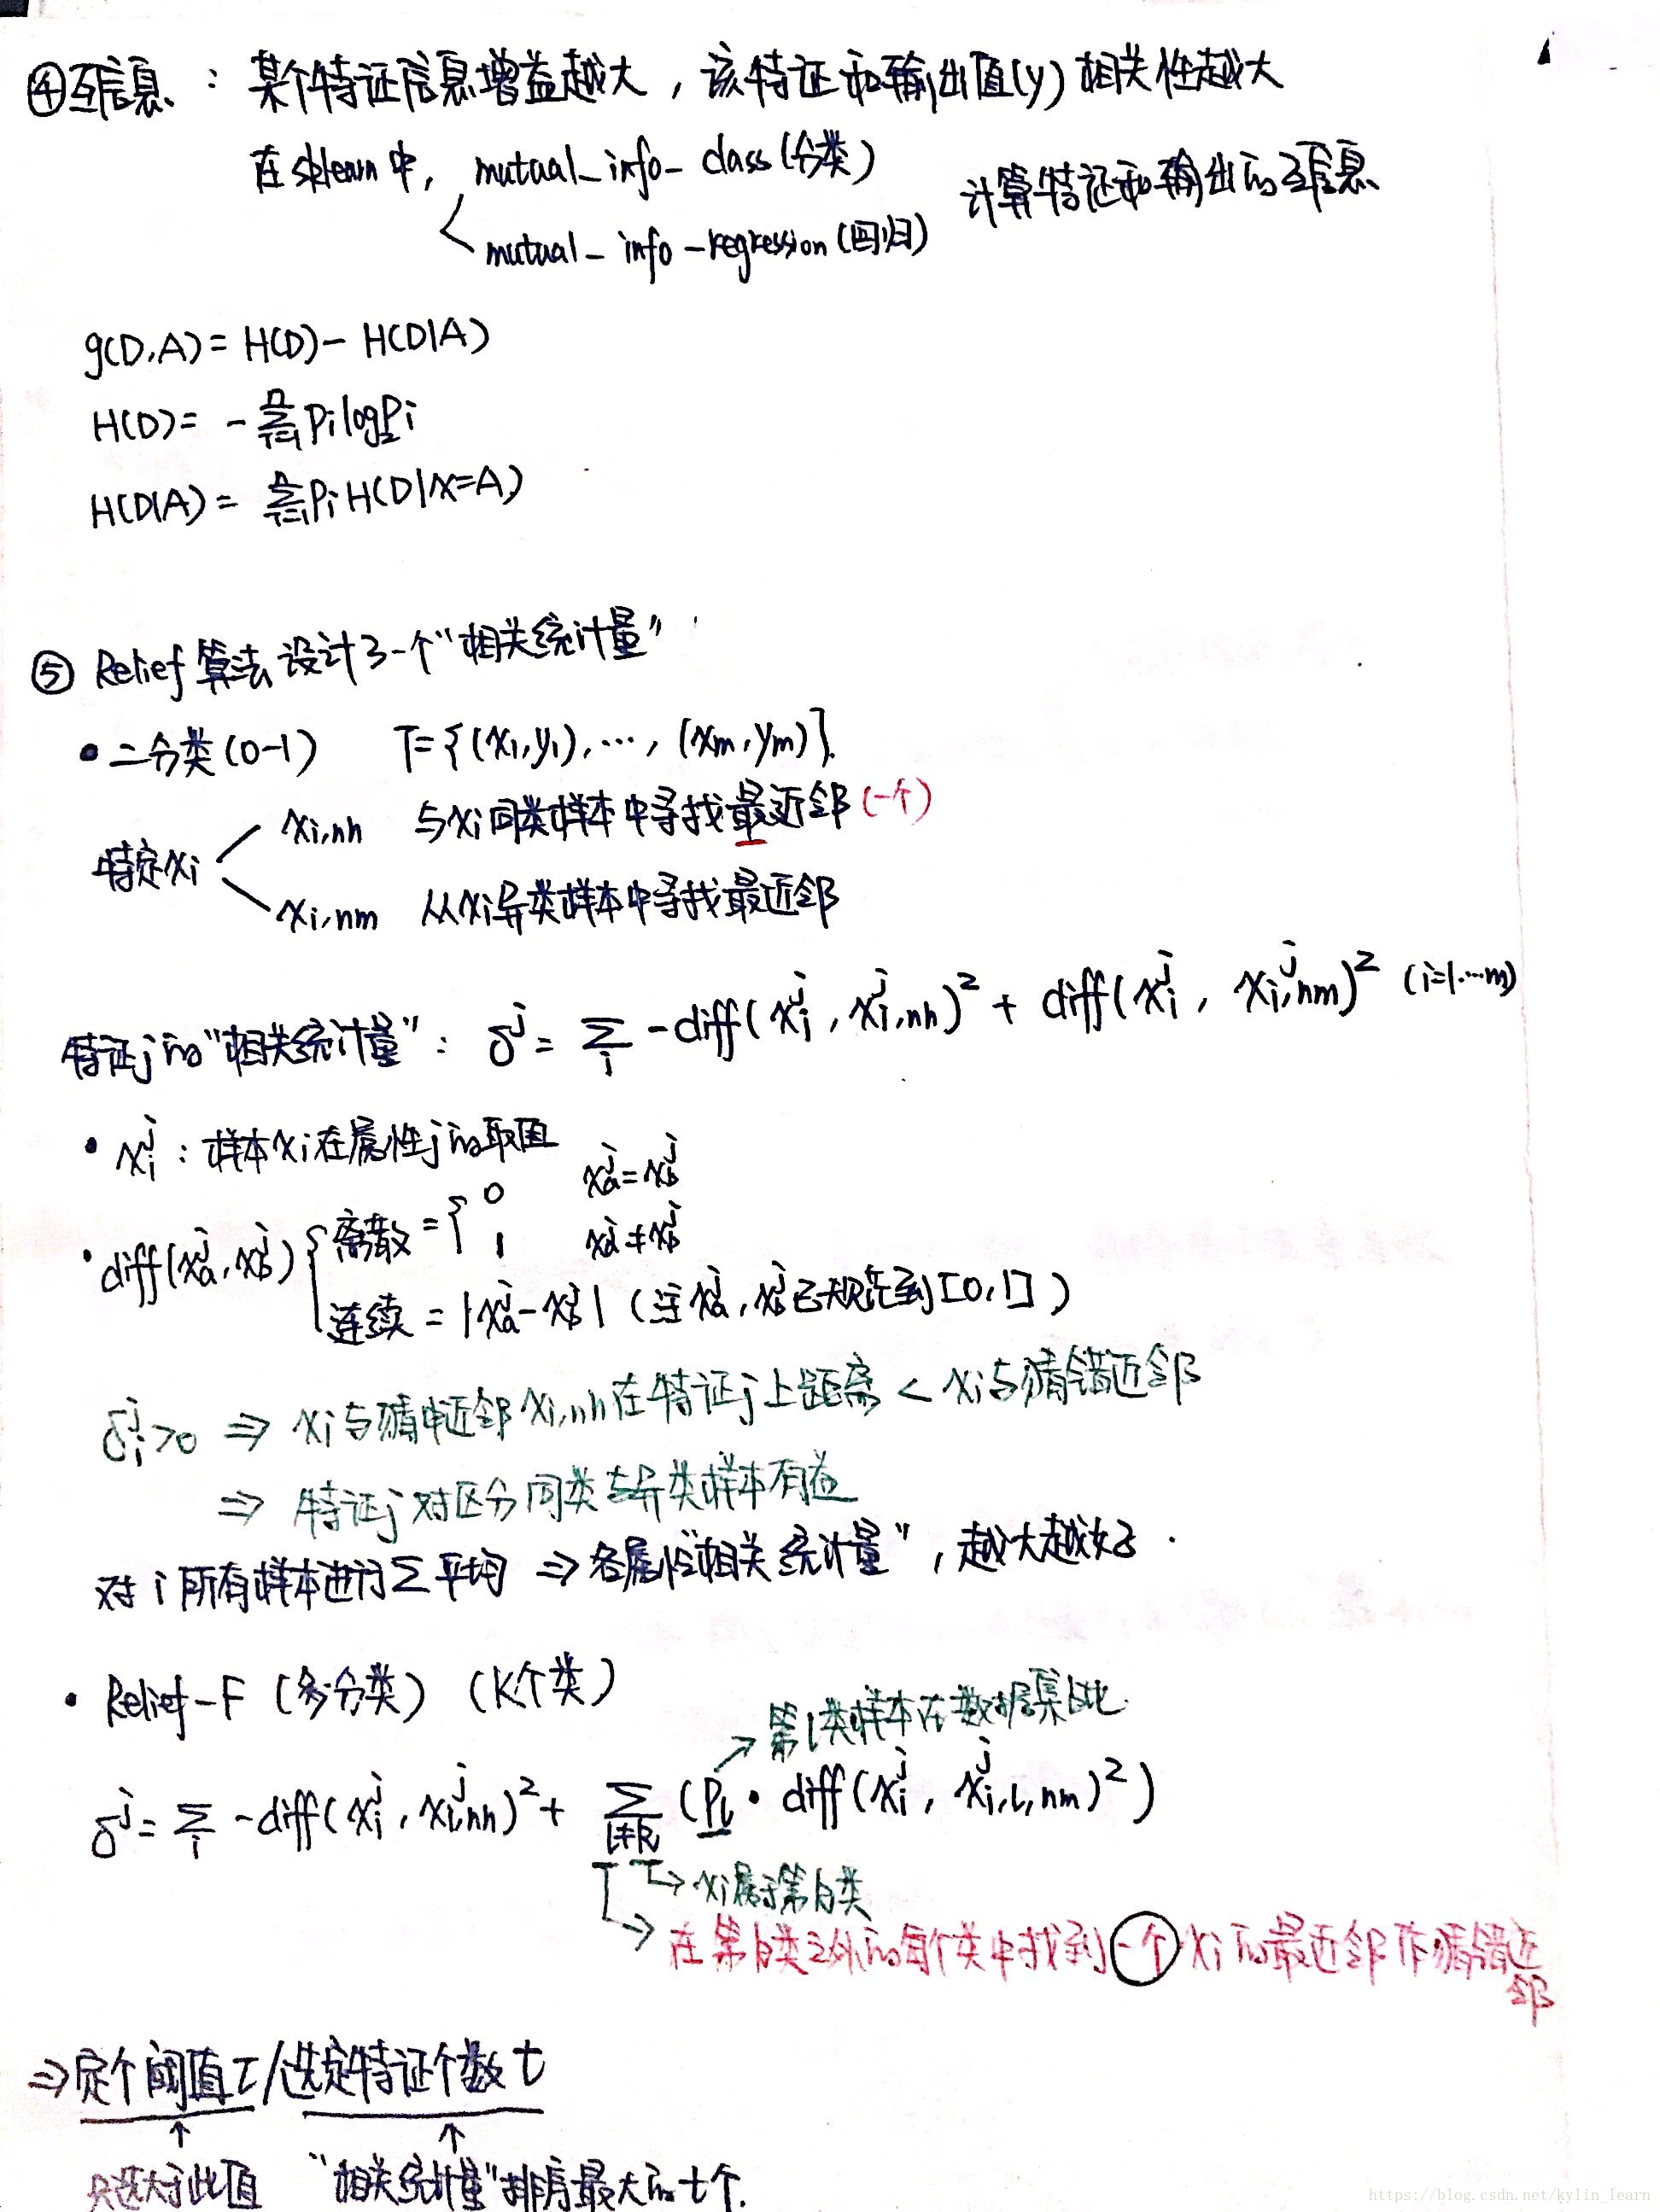 ④互信息: 某个特征信息增益越大,该特征和输出值(y)相关性越大
在sklearn中, mutual_info_class(分类) 计算特征和输出的互信息
mutual_info_regression(回归)
g(D,A)= H(D)- H(D|A)
H(D)= -∑ⁿᵢ₌₁ Pi log₂Pi
H(D|A)= ∑ⁿᵢ₌₁ Pi H(D|X=A)
⑤ Relief 算法设计了一个"相关统计量"
• 二分类(0-1) T={(x₁,y₁),…,(xm,ym)}.
特定xi
xi,nh 与xi同类样本中寻找最近邻(一个)
xi,nm 从xi异类样本中寻找最近邻
特征j的"相关统计量": δʲ= ∑ᵢ -diff(xᵢʲ, xʲi,nh)²+ diff(xᵢʲ, xʲi,nm)² (i=1…m)
• xᵢʲ:样本xi在属性j的取值
• diff(xₐʲ,x_bʲ) { 离散={ 0 xₐʲ=x_bʲ
1 xₐʲ≠x_bʲ
连续=|xₐʲ-x_bʲ| (注xₐʲ,x_bʲ已规范到[0,1])
δᵢʲ>0 ⇒ xi与猜中近邻xi,nh在特征j上距离< xi与猜错近邻
⇒ 特征j对区分同类与异类样本有益
对i所有样本进行∑平均 ⇒各属性"相关统计量",越大越好.
• Relief-F (多分类) (K个类)
→第l类样本在数据集占比
δʲ= ∑ᵢ -diff(xᵢʲ, xʲi,nh)²+ ∑l≠k (Pl• diff(xᵢʲ, xʲi,l,nm)²)
→xi属于第k类
→ 在第k类之外的每个类中找到一个xi的最近邻作猜错近邻
⇒定个阈值τ/选定特征个数t
↑ ↑
只选大于此值 "相关统计量"排序最大的t个.
https://blog.csdn.net/kylin_learn